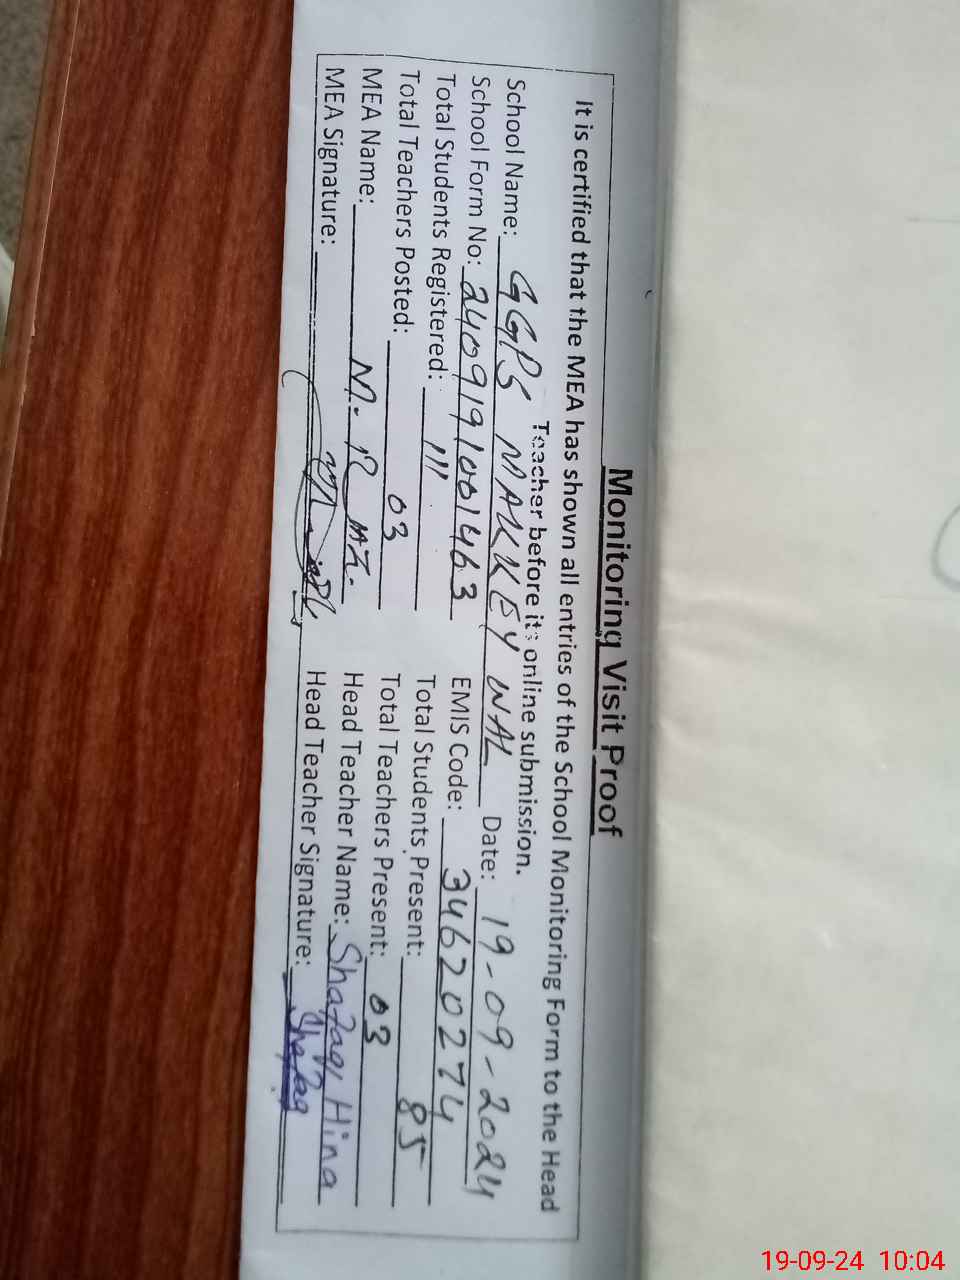 Monitoring Visit Proof
It is certified that the MEA has shown all entries of the School Monitoring Form to the Head
Teacher before its online submission.
School Name: GGPS MAKKEY WAL Date: 19-09-2024
School Form No: 2409191001463 EMIS Code: 34620274
Total Students Registered: 111 Total Students Present: 85
Total Teachers Posted: 03 Total Teachers Present: 03
MEA Name: M. R Head Teacher Name: Shafaq Hina
MEA Signature: Head Teacher Signature: Shafaq
19-09-24 10:04